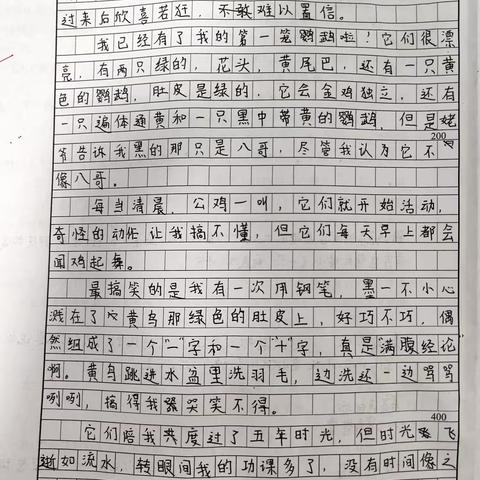 过来后欣喜若狂，不敢难以置信。
我已经有了我的第一笼鹦鹉啦！它们很漂
亮，有两只绿的，花头，黄尾巴，还有一只黄
色的鹦鹉，肚皮是绿的，它会金鸡独立，还有
一只遍体通黄和一只黑中带黄的鹦鹉，但是姥
200
爷告诉我黑的那只是八哥，尽管我认为它不
像八哥。
每当清晨，公鸡一叫，它们就开始活动，
奇怪的动作让我搞不懂，但它们每天早上都会
闻鸡起舞。
最搞笑的是我有一次用钢笔，墨一不小心
溅在了黄鸟那绿色的肚皮上，好巧不巧，偶
然组成了一个“一”字和一个“十”字，真是“满腹经论”
啊。黄鸟跳进水盆里洗羽毛，边洗还一边骂骂
咧咧，搞得我哭笑不得。
400
它们陪我共度过了五年时光，但时光飞
逝如流水，转眼间我的功课多了，没有时间像之